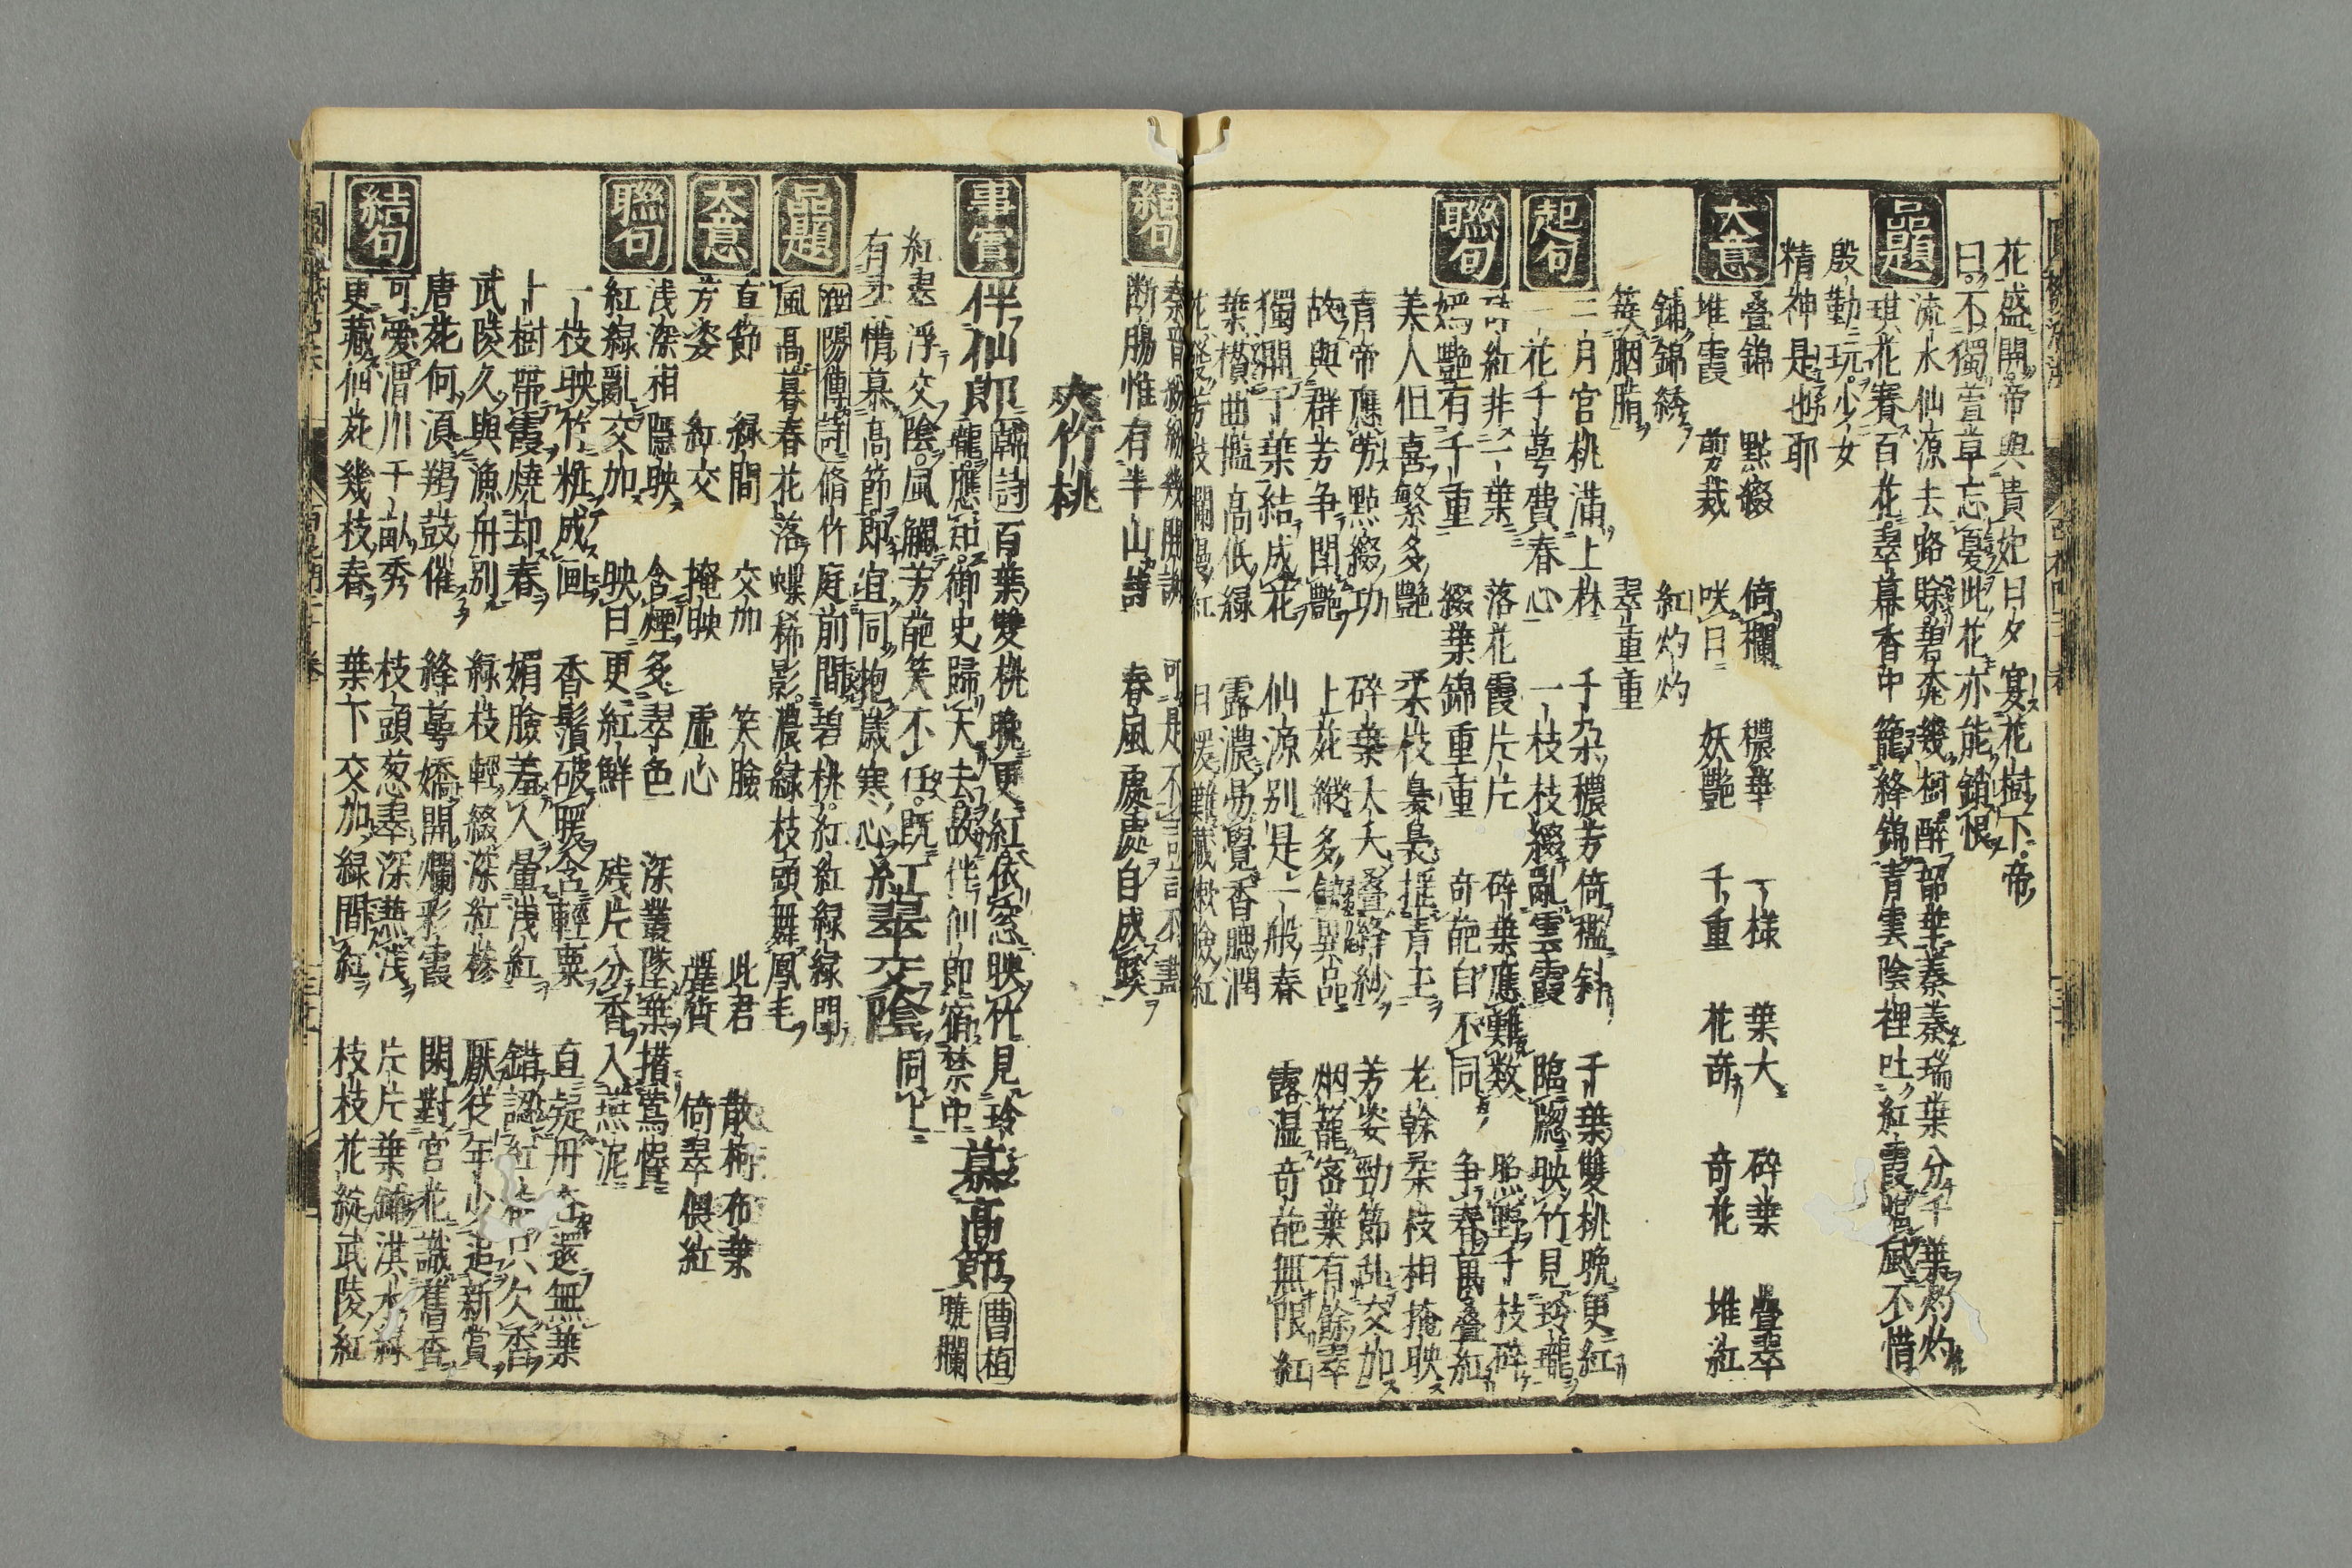 花盛開帝與貴妃日夕宴花樹下帝
曰不獨萱草忘憂此花亦能銷恨
品題
流水仙源去路賒碧桃幾樹醉韶華蓁蓁瑞葉分千葉灼灼
琪花賽百花翠幕香中籠絳錦青雲陰裡吐紅霞 風不惜
殷勤玩少女
精神是也耶
大意
叠錦 點綴 倚欄 穠華 一樣 葉大 碎葉 疊翠
堆霞 剪裁 咲日 妖艶 千重 花奇 奇花 堆紅
鋪錦綉 紅灼灼
簇胭脂 翠重重
起句
三月官桃滿上林 千朶穠芳倚檻斜 千葉雙桃晩更紅
一花千萼費春心 一枝枝綴亂雲霞 臨牕映竹見玲瓏
聯句
紅非一葉 落花霞片片 碎葉應難数 照野千枝碎
嫣艶有千重 綴葉錦重重 奇葩自不同 争春萬叠紅
美人但喜繁多艶 柔枝裊裊揺青玉 老幹朶枝相掩映
青帝應労點綴功 碎葉大大叠絳紗 芳姿勁節乱交加
故與群芳争閗艶 上苑縱多 異品 烟籠宻葉有餘翠
獨開千葉結成花 仙源別是一般春 露湿奇葩無限紅
葉横曲檻高低緑 露濃易覺香腮潤
花發芳枝爛熳紅 日暖難藏嫩臉紅
結句
秦晋紛紛幾勝謝 可是不言詩不盡
断膓惟有半山詩 春風處處自成蹊
夾竹桃
事實
伴仙郎 韓詩 百葉雙桃晩更紅依窓映竹見玲
瓏應知御史歸天去故伴仙郎宿禁中 慕高節 曹植
曉欄
紅盡浮交陰風觸芳葩笑不任既 紅翠交陰 同上
有 情慕高節即宜同抱歳寒心
品題
陽傳詩 脩竹庭前間碧桃紅紅緑緑閗
風高暮春花落蝶稀影濃緑枝頭舞鳳毛
大意
直節 緑間 交加 笑臉 此君 散梅布葉
芳姿 紅交 掩映 虚心 麗質 倚翠偎紅
聯句
浅深相隠映 含煙多翠色 深叢墜葉揩鶯慳
紅緑亂交加 映日更紅鮮 残片分香入燕泥
一枝映竹粧成画 香鬚破暖含輕粟 直疑丹杏還無葉
一樹帶霞燒却春 媚臉羞人暈浅紅 錯認紅 只欠香
武陵久與漁舟別 緑枝輕綴深紅糝 厭從年少追新賞
唐苑何湏羯鼓催 絳萼嬌開爛彩霞 閑對宮花識舊香
結句
可愛渭川千畝秀 枝頭葱翠深兼浅 片片葉鋪淇水緑
更藏仙苑幾枝春 葉下交加緑間紅 枝枝花綻武陵紅